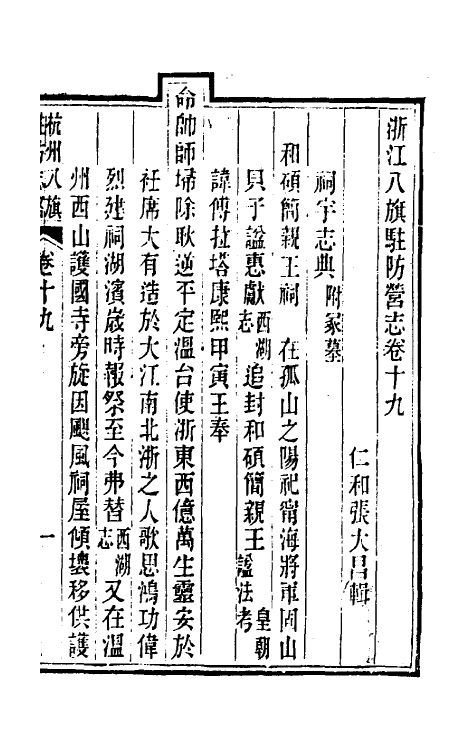 浙江八旗駐防營志卷十九
仁和張大昌輯
祠宇志典附冢墓
和碩簡親王祠 在孤山之陽祀甯海將軍固山
貝子諡惠獻西湖志追封和碩簡親王皇朝諡法考
諱傅拉塔康熙甲寅王奉
命帥師埽除耿逆平定溫台使浙東西億萬生靈安於
衽席大有造於大江南北浙之人歌思鴻功偉
烈建祠湖濱歲時報祭至今弗替西湖志又在溫
州西山護國寺旁旋因颶風祠屋傾壞移供護
杭州八旗
卷十九
一